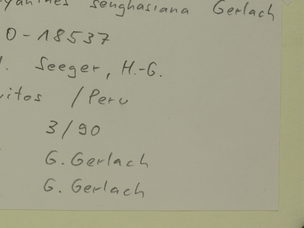 senghasiana Gerlach
0-18537
Seeger, H.-G.
/Peru
3/90
G. Gerlach
G. Gerlach